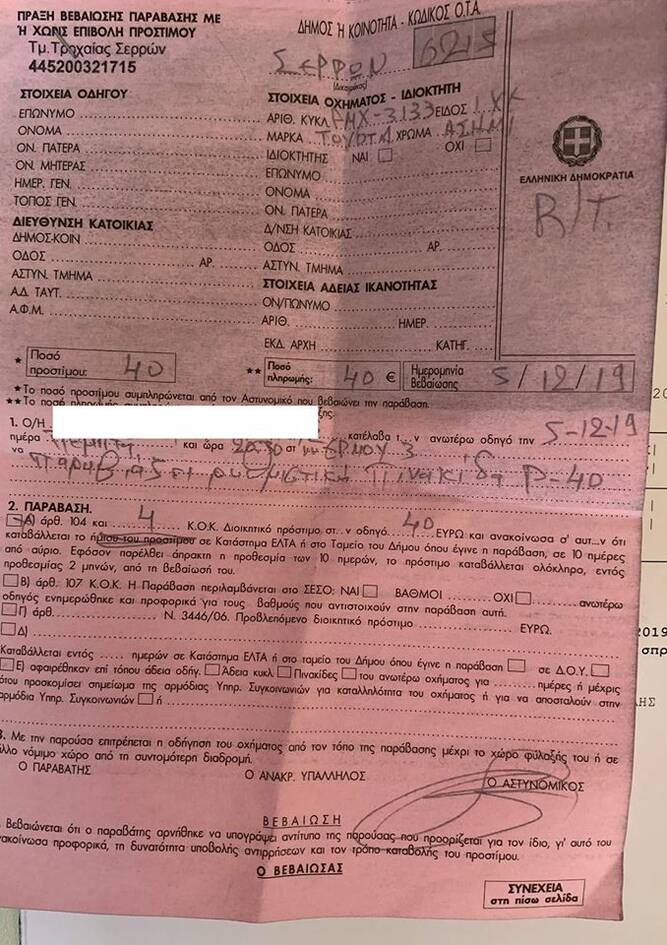 ΠΡΑΞΗ ΒΕΒΑΙΩΣΗΣ ΠΑΡΑΒΑΣΗΣ ΜΕ
Ή ΧΩΡΙΣ ΕΠΙΒΟΛΗ ΠΡΟΣΤΙΜΟΥ
Τμ.Τροχαίας Σερρών
445200321715
ΔΗΜΟΣ Ή ΚΟΙΝΟΤΗΤΑ - ΚΩΔΙΚΟΣ Ο.Τ.Α.
ΣΕΡΡΩΝ 6215
ΣΤΟΙΧΕΙΑ ΟΔΗΓΟΥ
ΕΠΩΝΥΜΟ
ΟΝΟΜΑ
ΟΝ. ΠΑΤΕΡΑ
ΟΝ. ΜΗΤΕΡΑΣ
ΗΜΕΡ. ΓΕΝ.
ΤΟΠΟΣ ΓΕΝ.
ΔΙΕΥΘΥΝΣΗ ΚΑΤΟΙΚΙΑΣ
ΔΗΜΟΣ-ΚΟΙΝ
ΟΔΟΣ ΑΡ.
ΑΣΤΥΝ. ΤΜΗΜΑ
ΑΔ. ΤΑΥΤ.
Α.Φ.Μ.
ΣΤΟΙΧΕΙΑ ΟΧΗΜΑΤΟΣ - ΙΔΙΟΚΤΗΤΗ
ΑΡΙΘ. ΚΥΚΛ ΜΧ-3133 ΕΙΔΟΣ Ι.Χ
ΜΑΡΚΑ ΤΟΥΟΤΑ ΧΡΩΜΑ ΑΣΗΜΙ
ΙΔΙΟΚΤΗΤΗΣ ΝΑΙ ΟΧΙ
ΕΠΩΝΥΜΟ
ΟΝΟΜΑ
ΟΝ. ΠΑΤΕΡΑ
Δ/ΝΣΗ ΚΑΤΟΙΚΙΑΣ
ΟΔΟΣ ΑΡ.
ΑΣΤΥΝ. ΤΜΗΜΑ
ΣΤΟΙΧΕΙΑ ΑΔΕΙΑΣ ΙΚΑΝΟΤΗΤΑΣ
ΟΝ/ΠΩΝΥΜΟ
ΑΡΙΘ. ΗΜΕΡ.
ΕΚΔ. ΑΡΧΗ ΚΑΤΗΓ.
ΕΛΛΗΝΙΚΗ ΔΗΜΟΚΡΑΤΙΑ
R/T.
* Ποσό προστίμου: 40
** Ποσό πληρωμής: 40 €
Ημερομηνία Βεβαίωσης 5/12/19
*Το ποσό προστίμου συμπληρώνεται από τον Αστυνομικό που βεβαιώνει την παράβαση.
**Το ποσό
1. Ο/Η κατέλαβα τ... ν ανωτέρω οδηγό την 5-12-19
ημέρα Πέμπτη και ώρα 20:30 στ ΕΡΜΟΥ 3
να παραβιάζει ρυθμιστική πινακίδα Ρ-40
2. ΠΑΡΑΒΑΣΗ.
Α) άρθ. 104 και 4 Κ.Ο.Κ. Διοικητικό πρόστιμο στ...ν οδηγό 40 ΕΥΡΩ και ανακοίνωσα σ' αυτ...ν ότι
καταβάλλεται το ήμισυ του προστίμου σε Κατάστημα ΕΛΤΑ ή στο Ταμείο του Δήμου όπου έγινε η παράβαση, σε 10 ημέρες
από αύριο. Εφόσον παρέλθει άπρακτη η προθεσμία των 10 ημερών, το πρόστιμο καταβάλλεται ολόκληρο, εντός
προθεσμίας 2 μηνών, από τη βεβαίωσή του.
Β) άρθ. 107 Κ.Ο.Κ. Η Παράβαση περιλαμβάνεται στο ΣΕΣΟ: ΝΑΙ ΒΑΘΜΟΙ ΟΧΙ ανωτέρω
οδηγός ενημερώθηκε και προφορικά για τους βαθμούς που αντιστοιχούν στην παράβαση αυτή.
Γ) άρθ. Ν. 3446/06. Προβλεπόμενο διοικητικό πρόστιμο ΕΥΡΩ.
Δ)
Καταβάλλεται εντός ημερών σε Κατάστημα ΕΛΤΑ ή στο ταμείο του Δήμου όπου έγινε η παράβαση σε Δ.Ο.Υ.
Ε) αφαιρέθηκαν επί τόπου άδεια οδήγ. Άδεια κυκλ Πινακίδες του ανωτέρω οχήματος για ημέρες ή μέχρις
ότου προσκομίσει σημείωμα της αρμόδιας Υπηρ. Συγκοινωνιών για καταλληλότητα του οχήματος ή για να αποσταλούν στην
αρμόδια Υπηρ. Συγκοινωνιών ή
3. Με την παρούσα επιτρέπεται η οδήγηση του οχήματος από τον τόπο της παράβασης μέχρι το χώρο φύλαξής του ή σε
άλλο νόμιμο χώρο από τη συντομότερη διαδρομή.
Ο ΠΑΡΑΒΑΤΗΣ Ο ΑΝΑΚΡ. ΥΠΑΛΛΗΛΟΣ Ο ΑΣΤΥΝΟΜΙΚΟΣ
ΒΕΒΑΙΩΣΗ
Βεβαιώνεται ότι ο παραβάτης αρνήθηκε να υπογράψει αντίτυπο της παρούσας που προορίζεται για τον ίδιο, γι' αυτό του
ανακοίνωσα προφορικά, τη δυνατότητα υποβολής αντιρρήσεων και τον τρόπο καταβολής του προστίμου.
Ο ΒΕΒΑΙΩΣΑΣ
ΣΥΝΕΧΕΙΑ
στη πίσω σελίδα